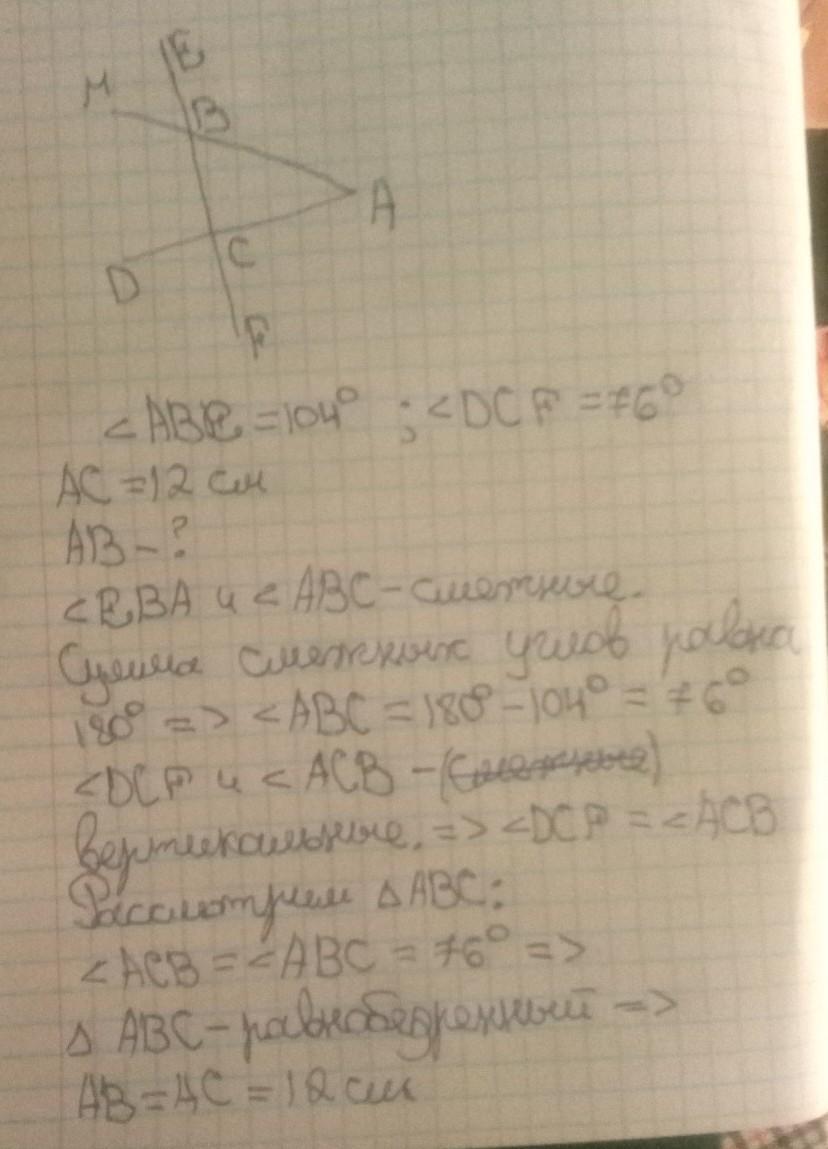 E
M
B
A
C
D
F
<ABE = 104° ; <DCF = 76°
AC = 12 см
AB - ?
<EBA и <ABC - смежные.
Сумма смежных углов равна
180° => <ABC = 180° - 104° = 76°
<DCF и <ACB - (смежные)
вертикальные. => <DCF = <ACB
Рассмотрим △ABC:
<ACB = <ABC = 76° =>
△ ABC - равнобедренный =>
AB = AC = 12 см